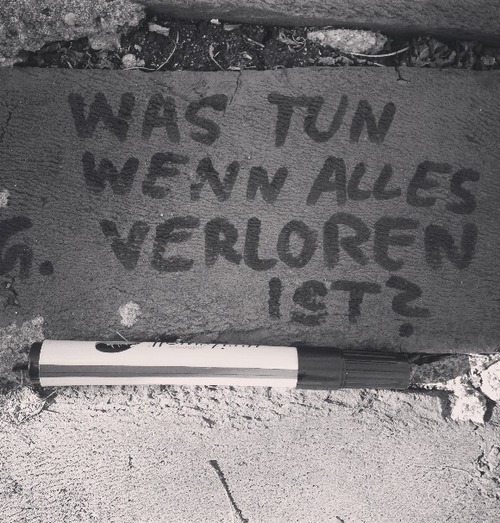 WAS TUN
WENN ALLES
G. VERLOREN
IST?